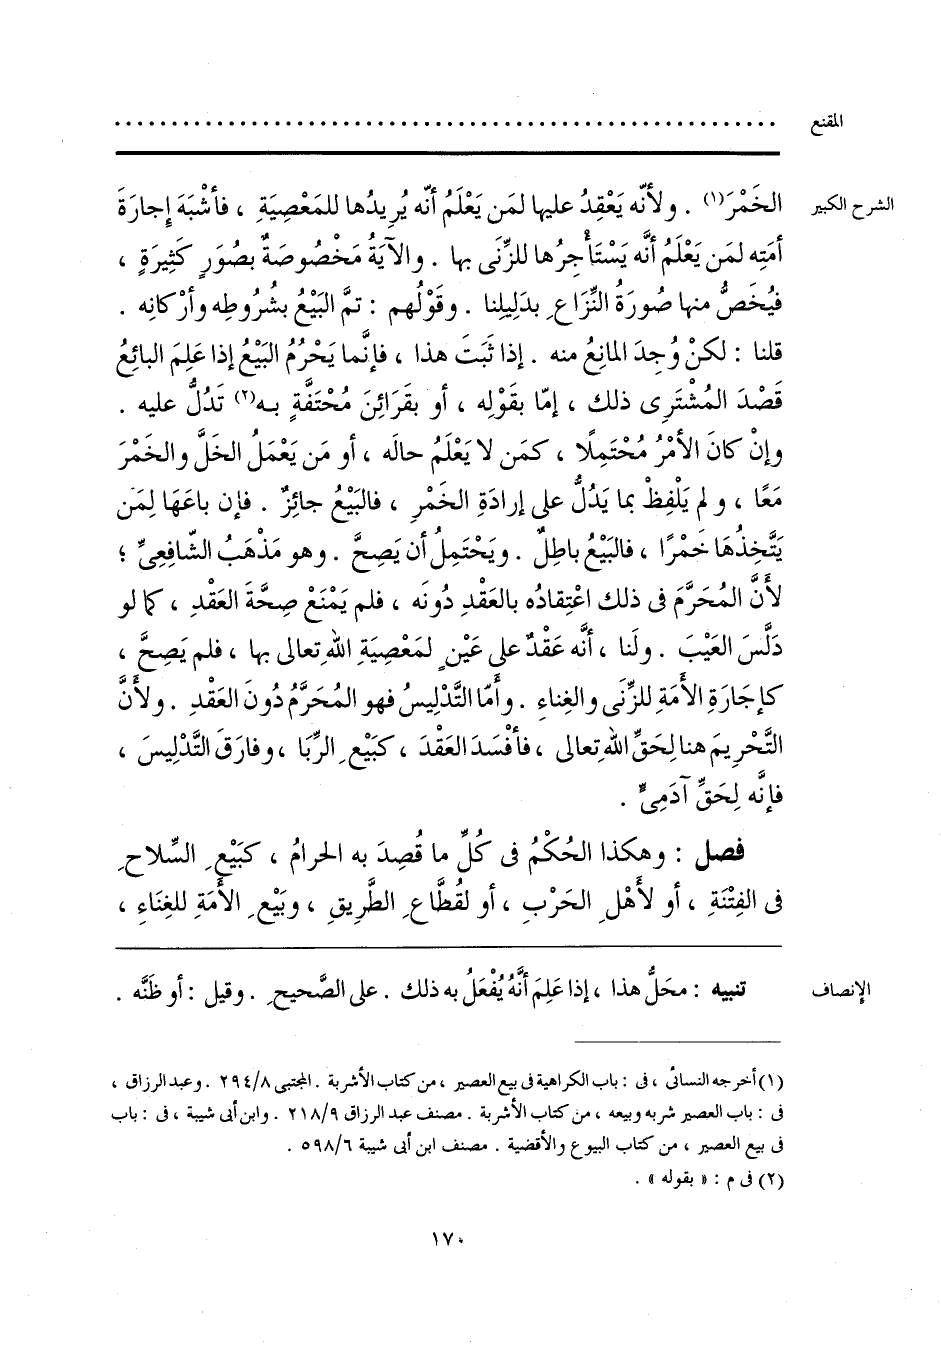 المقنع ............................................................
الشرح الكبير الخَمْرَ(١) . ولأنَّه يَعْقِدُ عليها لمَن يَعْلَمُ أنَّه يُرِيدُها للمَعْصِيَةِ ، فأشْبَهَ إجارَةَ
أمَتِه لمَن يَعْلَمُ أنَّه يَسْتَأْجِرُها للزِّنَى بها . والآيَةُ مَخْصُوصَةٌ بصُوَرٍ كَثِيرَةٍ ،
فيُخَصُّ منها صُورَةُ النِّزَاعِ بدَلِيلِنا . وقَوْلُهم : تمَّ البَيْعُ بشُرُوطِه وأرْكانِه .
قلنا : لكنْ وُجِدَ المانِعُ منه . إذا ثَبَتَ هذا ، فإنَّما يَحْرُمُ البَيْعُ إذا عَلِمَ البائِعُ
قَصْدَ المُشْتَرِى ذلك ، إمّا بقَوْلِه ، أو بقَرائِنَ مُحْتَفَّةٍ بـه(٢) تَدُلُّ عليه .
وإنْ كانَ الأمْرُ مُحْتَمِلًا ، كمَن لا يَعْلَمُ حالَه ، أو مَن يَعْمَلُ الخَلَّ والخَمْرَ
مَعًا ، و لم يَلْفِظْ بما يَدُلُّ على إرادَةِ الخَمْرِ ، فالبَيْعُ جائِزٌ . فإن باعَهَا لِمَن
يَتَّخِذُهَا خَمْرًا ، فالبَيْعُ باطِلٌ . ويَحْتَمِلُ أن يَصِحَّ . وهو مَذْهَبُ الشّافِعِىِّ ؛
لأنَّ المُحَرَّمَ فى ذلك اعْتِقادُه بالعَقْدِ دُونَه ، فلم يَمْنَعْ صِحَّةَ العَقْدِ ، كما لو
دَلَّسَ العَيْبَ . ولَنا ، أنَّه عَقْدٌ على عَيْنٍ لمَعْصِيَةِ اللهِ تعالى بها ، فلم يَصِحَّ ،
كإجَارَةِ الأمَةِ للزِّنَى والغِناءِ . وأمّا التَّدْلِيسُ فهو المُحَرَّمُ دُونَ العَقْدِ . ولأنَّ
التَّحْرِيمَ هنا لِحَقِّ اللهِ تعالى ، فأفْسَدَ العَقْدَ ، كبَيْعِ الرِّبَا ، وفارَقَ التَّدْلِيسَ ،
فإنَّه لِحَقِّ آدَمِىٍّ .
فصل : وهكذا الحُكْمُ فى كُلِّ ما قُصِدَ به الحرامُ ، كبَيْعِ السِّلاحِ
فى الفِتْنَةِ ، أو لأهْلِ الحَرْبِ ، أو لقُطَّاعِ الطَّرِيقِ ، وبَيْعِ الأمَةِ للغِنَاءِ ،
الإنصاف تنبيه : محَلُّ هذا ، إذا عَلِمَ أنَّهُ يُفْعَلُ به ذلك . على الصَّحيحِ . وقيل : أو ظَنَّه .
(١) أخرجه النسائى ، فى : باب الكراهية فى بيع العصير ، من كتاب الأشربة . المجتبى ٢٩٤/٨ . وعبد الرزاق ،
فى : باب العصير شربه وبيعه ، من كتاب الأشربة . مصنف عبد الرزاق ٢١٨/٩ . وابن أبى شيبة ، فى : باب
فى بيع العصير ، من كتاب البيوع والأقضية . مصنف ابن أبى شيبة ٥٩٨/٦ .
(٢) فى م : « بقوله » .
١٧٠